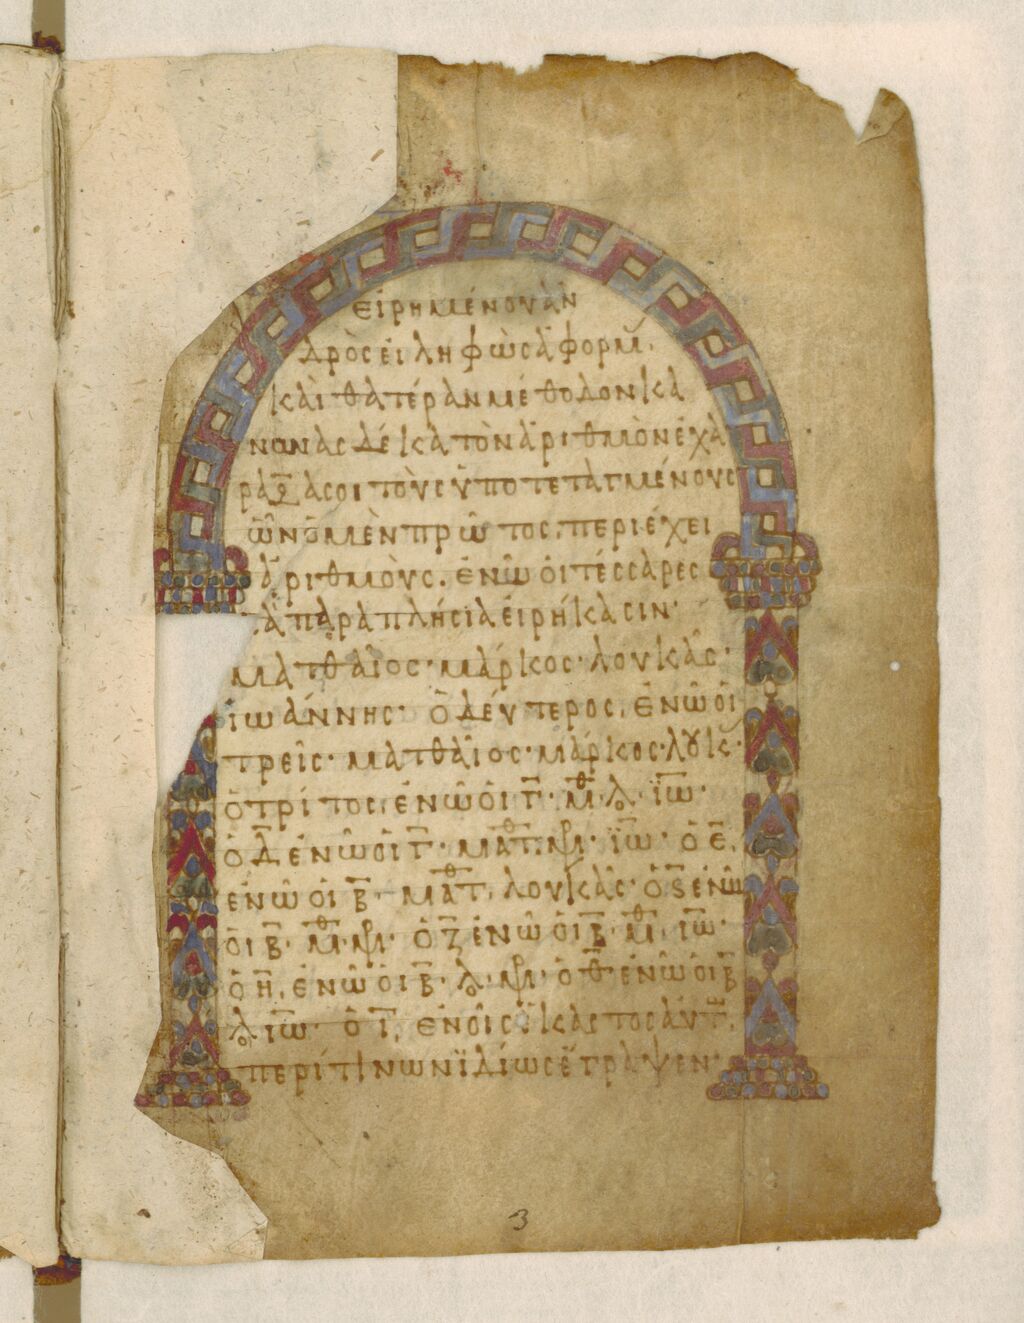 εἰρημένου ἀν
δρὸς εἰληφὼς ἀφορμ
καὶ θατέραν μέθοδον κα
νωνας δέκα τὸν ἀριθμὸν ἐχὰ
ραξά σοι τοὺς ὑποτεταγμένους
ὧν ὁ μὲν πρῶτος, περιέχει
ἀριθμοὺς. ἐν ᾧ οἱ τέσσαρες
τὰ παραπλήσια εἰρήκασιν·
ματθαῖος· μάρκος· λουκᾶς·
ἰωάννης· ὁ δεύτερος, ἐν ᾧ οἱ
τρεῖς· ματθαῖος· μάρκος· λουκ·
ὁ τρίτος, ἐν ᾧ οἱ γ̅· μ̅θ· λο· ϊω̅·
ὁ δ̅ ἐν ᾧ οἱ γ̅· ματθ· μρ· ϊω̅· ὁ ε̅,
ἐν ᾧ οἱ β̅· ματθ, λουκᾶς· ὁ ϛ̅ ἐν ᾧ
οἱ β̅· μ̅θ· μρ· ὁ ζ̅ ἐν ᾧ οἱ β̅· μ̅θ· ϊω̅·
ὁ η̅, ἐν ᾧ οἱ β̅· λο· μρ· ὁ θ̅ ἐν ᾧ οἱ β̅
λο ϊω̅· ὁ ι̅, ἐν οἷς ἕκαστος αὐτ,
περί τινων ϊδίως ἔγραψεν·
3